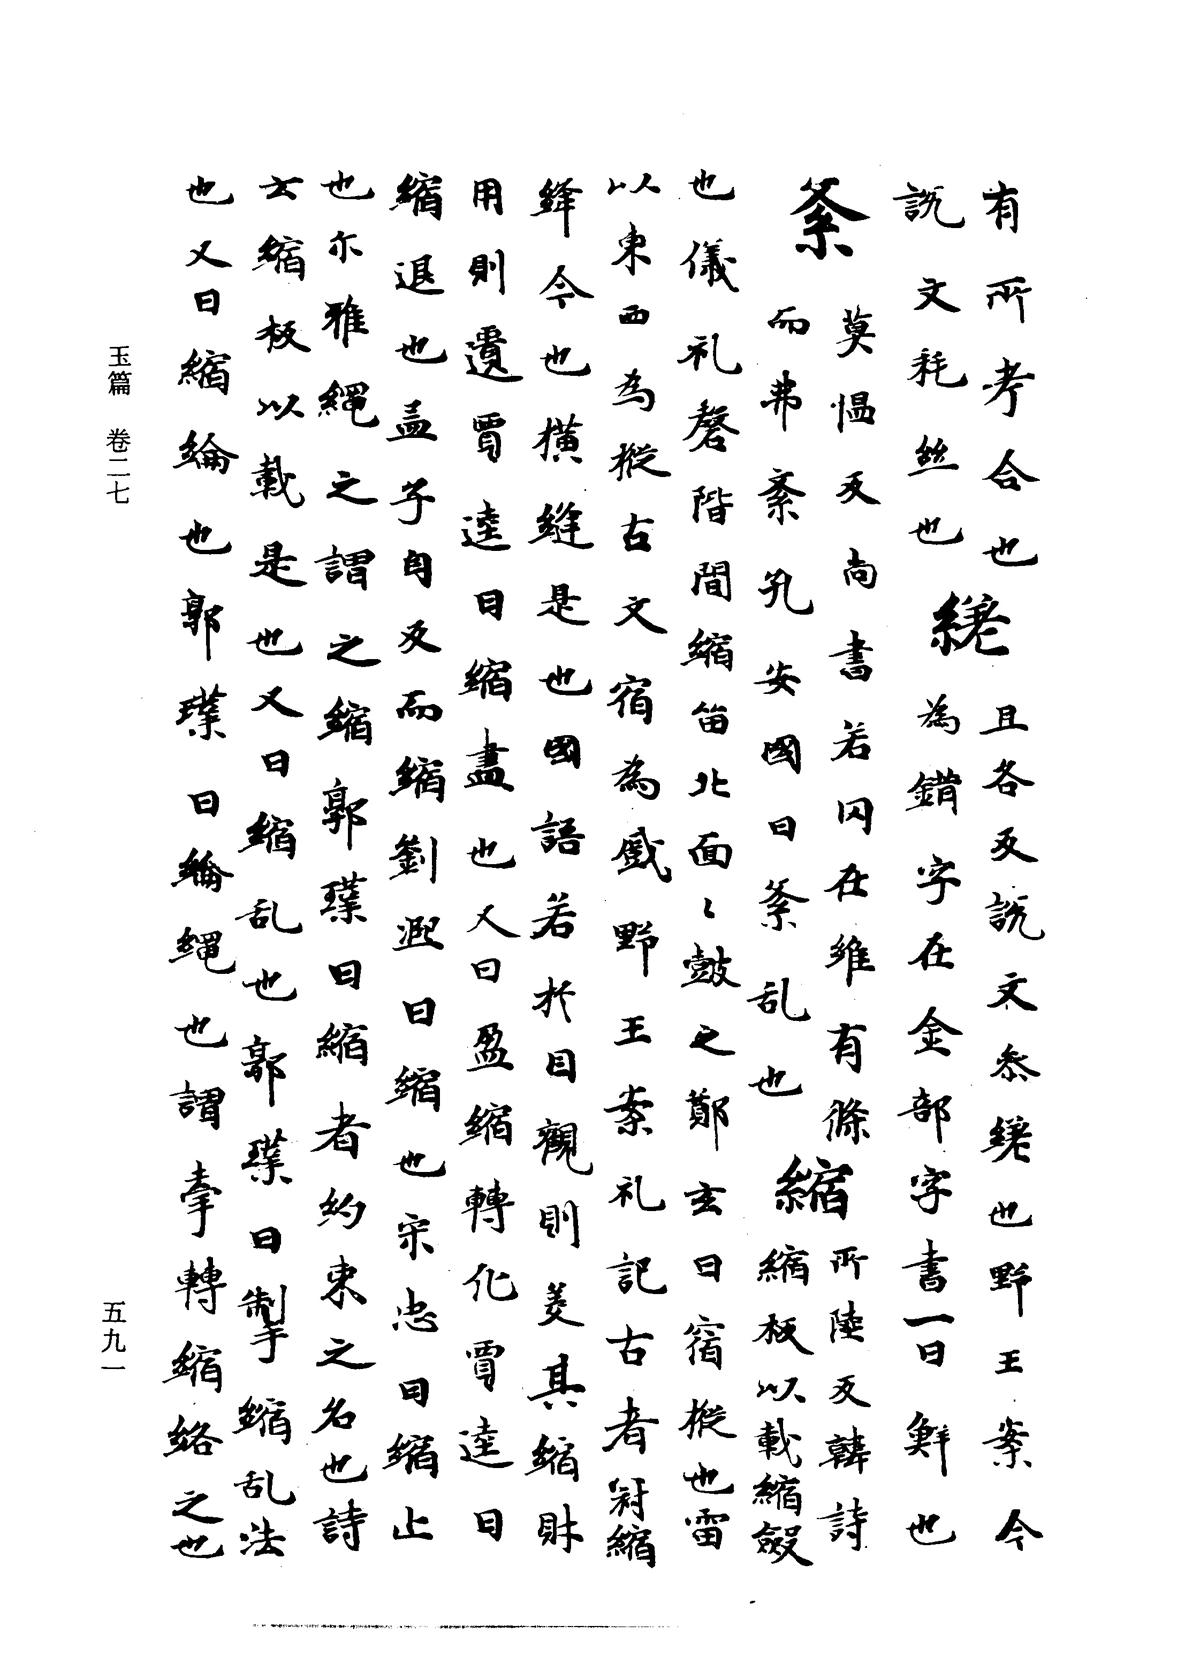 有所考合也縒且各反說文叅縒也野王案今
說文秏絲也為錯字在金部字書一曰鮮也
紊莫愠反尚書若罔在維有條
而弗紊孔安國曰紊乱也
縮所陸反韓詩
縮板以載縮斂
也儀礼罄階間縮笛北面〻鼓之鄭玄曰宿樅也雷
以東西為樅古文宿為蹙野王案礼記古者冠縮
縫今也橫縫是也國語若於目觀則羙其縮財
用則遺賈逵曰縮盡也又曰盈縮轉化賈逵曰
縮退也孟子自反而縮劉熙曰縮也宋忠曰縮止
也尔雅繩之謂之縮郭璞曰縮者約束之名也詩
云縮板以載是也又曰縮乱也郭璞曰掣縮乱法
也又曰縮綸也郭璞曰綸繩也謂牽轉縮絡之也
玉篇 卷二七
五九一